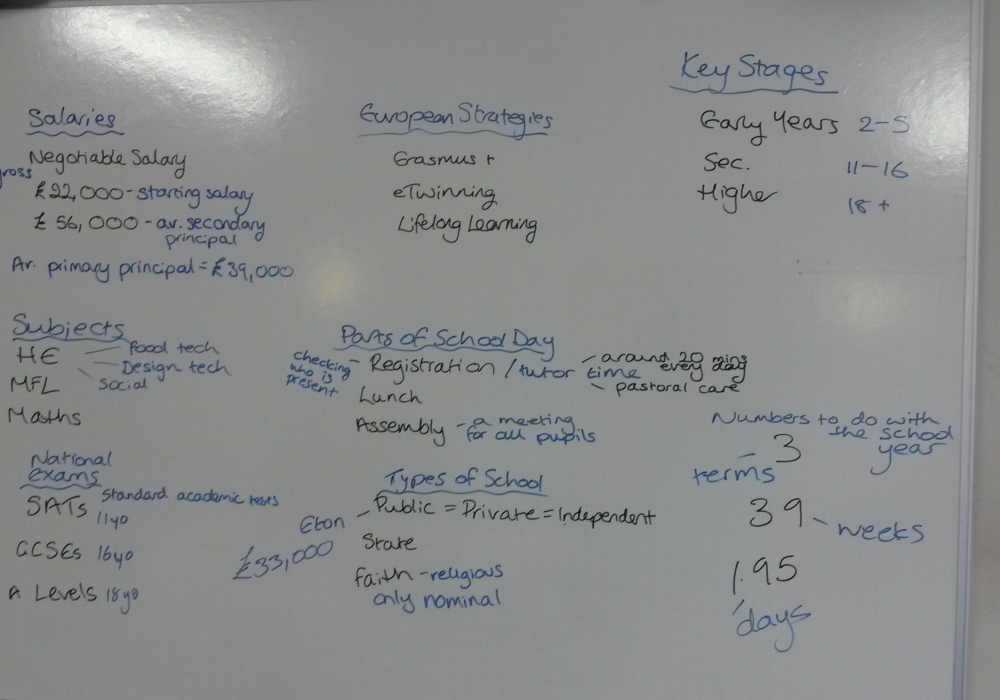 Salaries
Negotiable Salary
gross
£22,000 - starting salary
£56,000 - av. secondary
principal
Av. primary principal = £39,000
European Strategies
Erasmus +
eTwinning
Lifelong Learning
Key Stages
Early Years 2-5
Sec. 11-16
Higher 18+
Subjects
HE - Food tech
- Design tech
- Social
MFL
Maths
National
exams
SATs Standard academic tests
11yo
GCSEs 16yo
A Levels 18yo
Parts of School Day
checking
who is
present
- Registration / tutor time
- around 20 mins
every day
- pastoral care
Lunch
Assembly - a meeting
for all pupils
Types of School
Eton - Public = Private = Independent
£33,000
State
Faith - religious
only nominal
Numbers to do with
the school
year
3
terms
39 - weeks
195
days